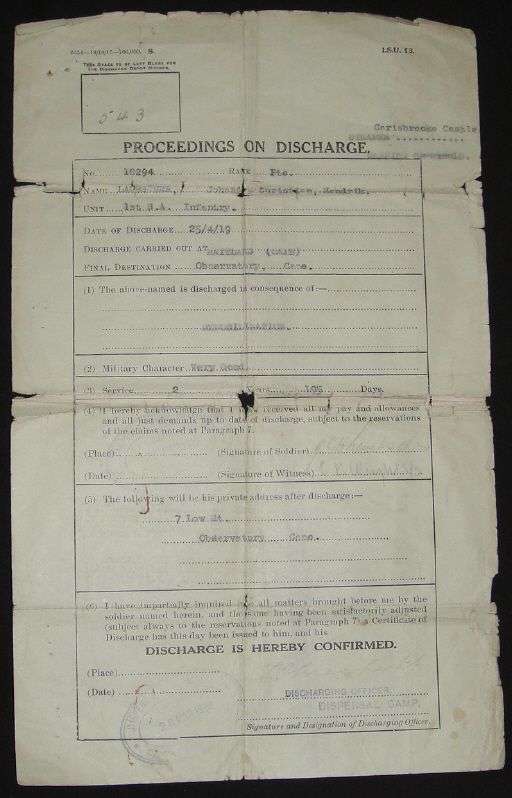 I.S.U. 13.
THIS SPACE TO BE LEFT BLANK FOR
THE DISCHARGE DEPOT NUMBER.
543
Carisbrooke Castle
PROCEEDINGS ON DISCHARGE.
No. 10294 RANK Pte.
NAME Johannes, Christian, Hendrik.
UNIT 1st S.A. Infantry.
DATE OF DISCHARGE 25/4/19
DISCHARGE CARRIED OUT AT MAITLAND (CAPE)
FINAL DESTINATION Observatory, Cape.
(1) The above-named is discharged in consequence of:—
DEMOBILISATION.
(2) Military Character Very Good.
(3) Service 2 Years Days.
(4) I hereby acknowledge that I have received all my pay and allowances
and all just demands up to date of discharge, subject to the reservations
of the claims noted at Paragraph 7.
(Place) (Signature of Soldier)
(Date) (Signature of Witness)
(5) The following will be his private address after discharge:—
7 Low St.
Observatory Cape.
(6) I have impartially inquired into all matters brought before me by the
soldier named herein, and the same having been satisfactorily adjusted
(subject always to the reservations noted at Paragraph 7) a Certificate of
Discharge has this day been issued to him, and his
DISCHARGE IS HEREBY CONFIRMED.
(Place)
(Date)
DISCHARGING OFFICER,
DISPERSAL CAMP.
Signature and Designation of Discharging Officer.